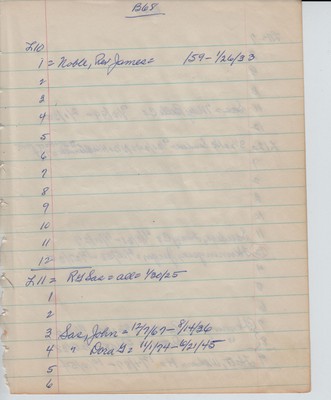 B68
L10
1 = Noble, Rev. James = 159 - 1/26/33
2
3
4
5
6
7
8
9
10
11
12
L11 = = all = 1/30/25
1
2
3 Sas, John = 12/7/67 - 8/14/36
4 " Dora G = 11/1/74 - 6/21/45
5
6